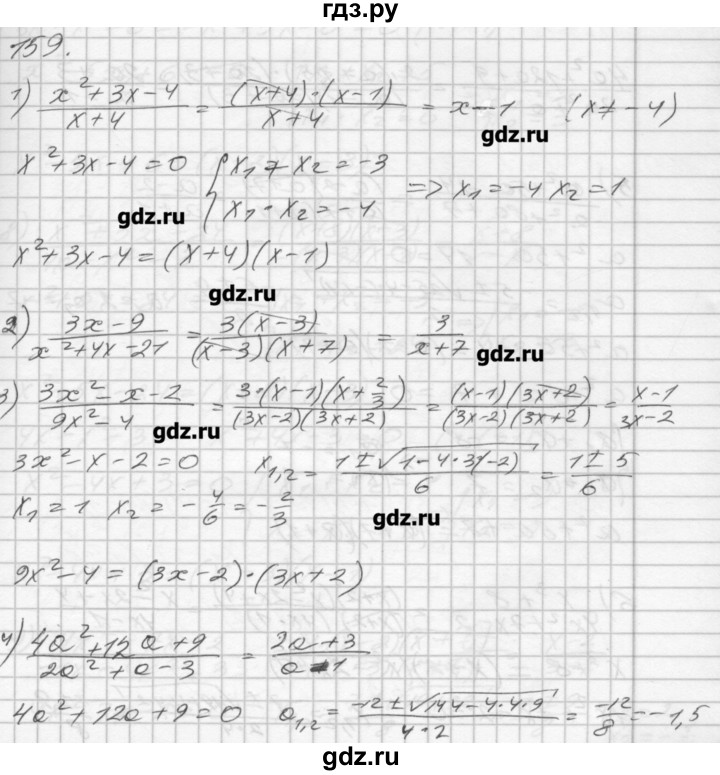 гдз.ру
159.
1) (x²+3x-4)/(x+4) = ((x+4)·(x-1))/(x+4) = x-1 (x≠-4)
gdz.ru
x²+3x-4=0 { x₁+x₂=-3 x₁·x₂=-4 => x₁=-4 x₂=1
gdz.ru
x²+3x-4=(x+4)(x-1)
gdz.ru
2) (3x-9)/(x²+4x-21) = (3(x-3))/((x-3)(x+7)) = 3/(x+7)
gdz.ru
3) (3x²-x-2)/(9x²-4) = (3·(x-1)(x+2/3))/((3x-2)(3x+2)) = ((x-1)(3x+2))/((3x-2)(3x+2)) = (x-1)/(3x-2)
gdz.ru
3x²-x-2=0 x₁,₂ = (1±√(1-4·3(-2)))/6 = (1±5)/6
x₁=1 x₂=-4/6=-2/3
gdz.ru
9x²-4=(3x-2)·(3x+2)
4) (4a²+12a+9)/(2a²+a-3) = (2a+3)/(a-1)
gdz.ru
4a²+12a+9=0 a₁,₂ = (-12±√(144-4·4·9))/(4·2) = -12/8 = -1,5
gdz.ru